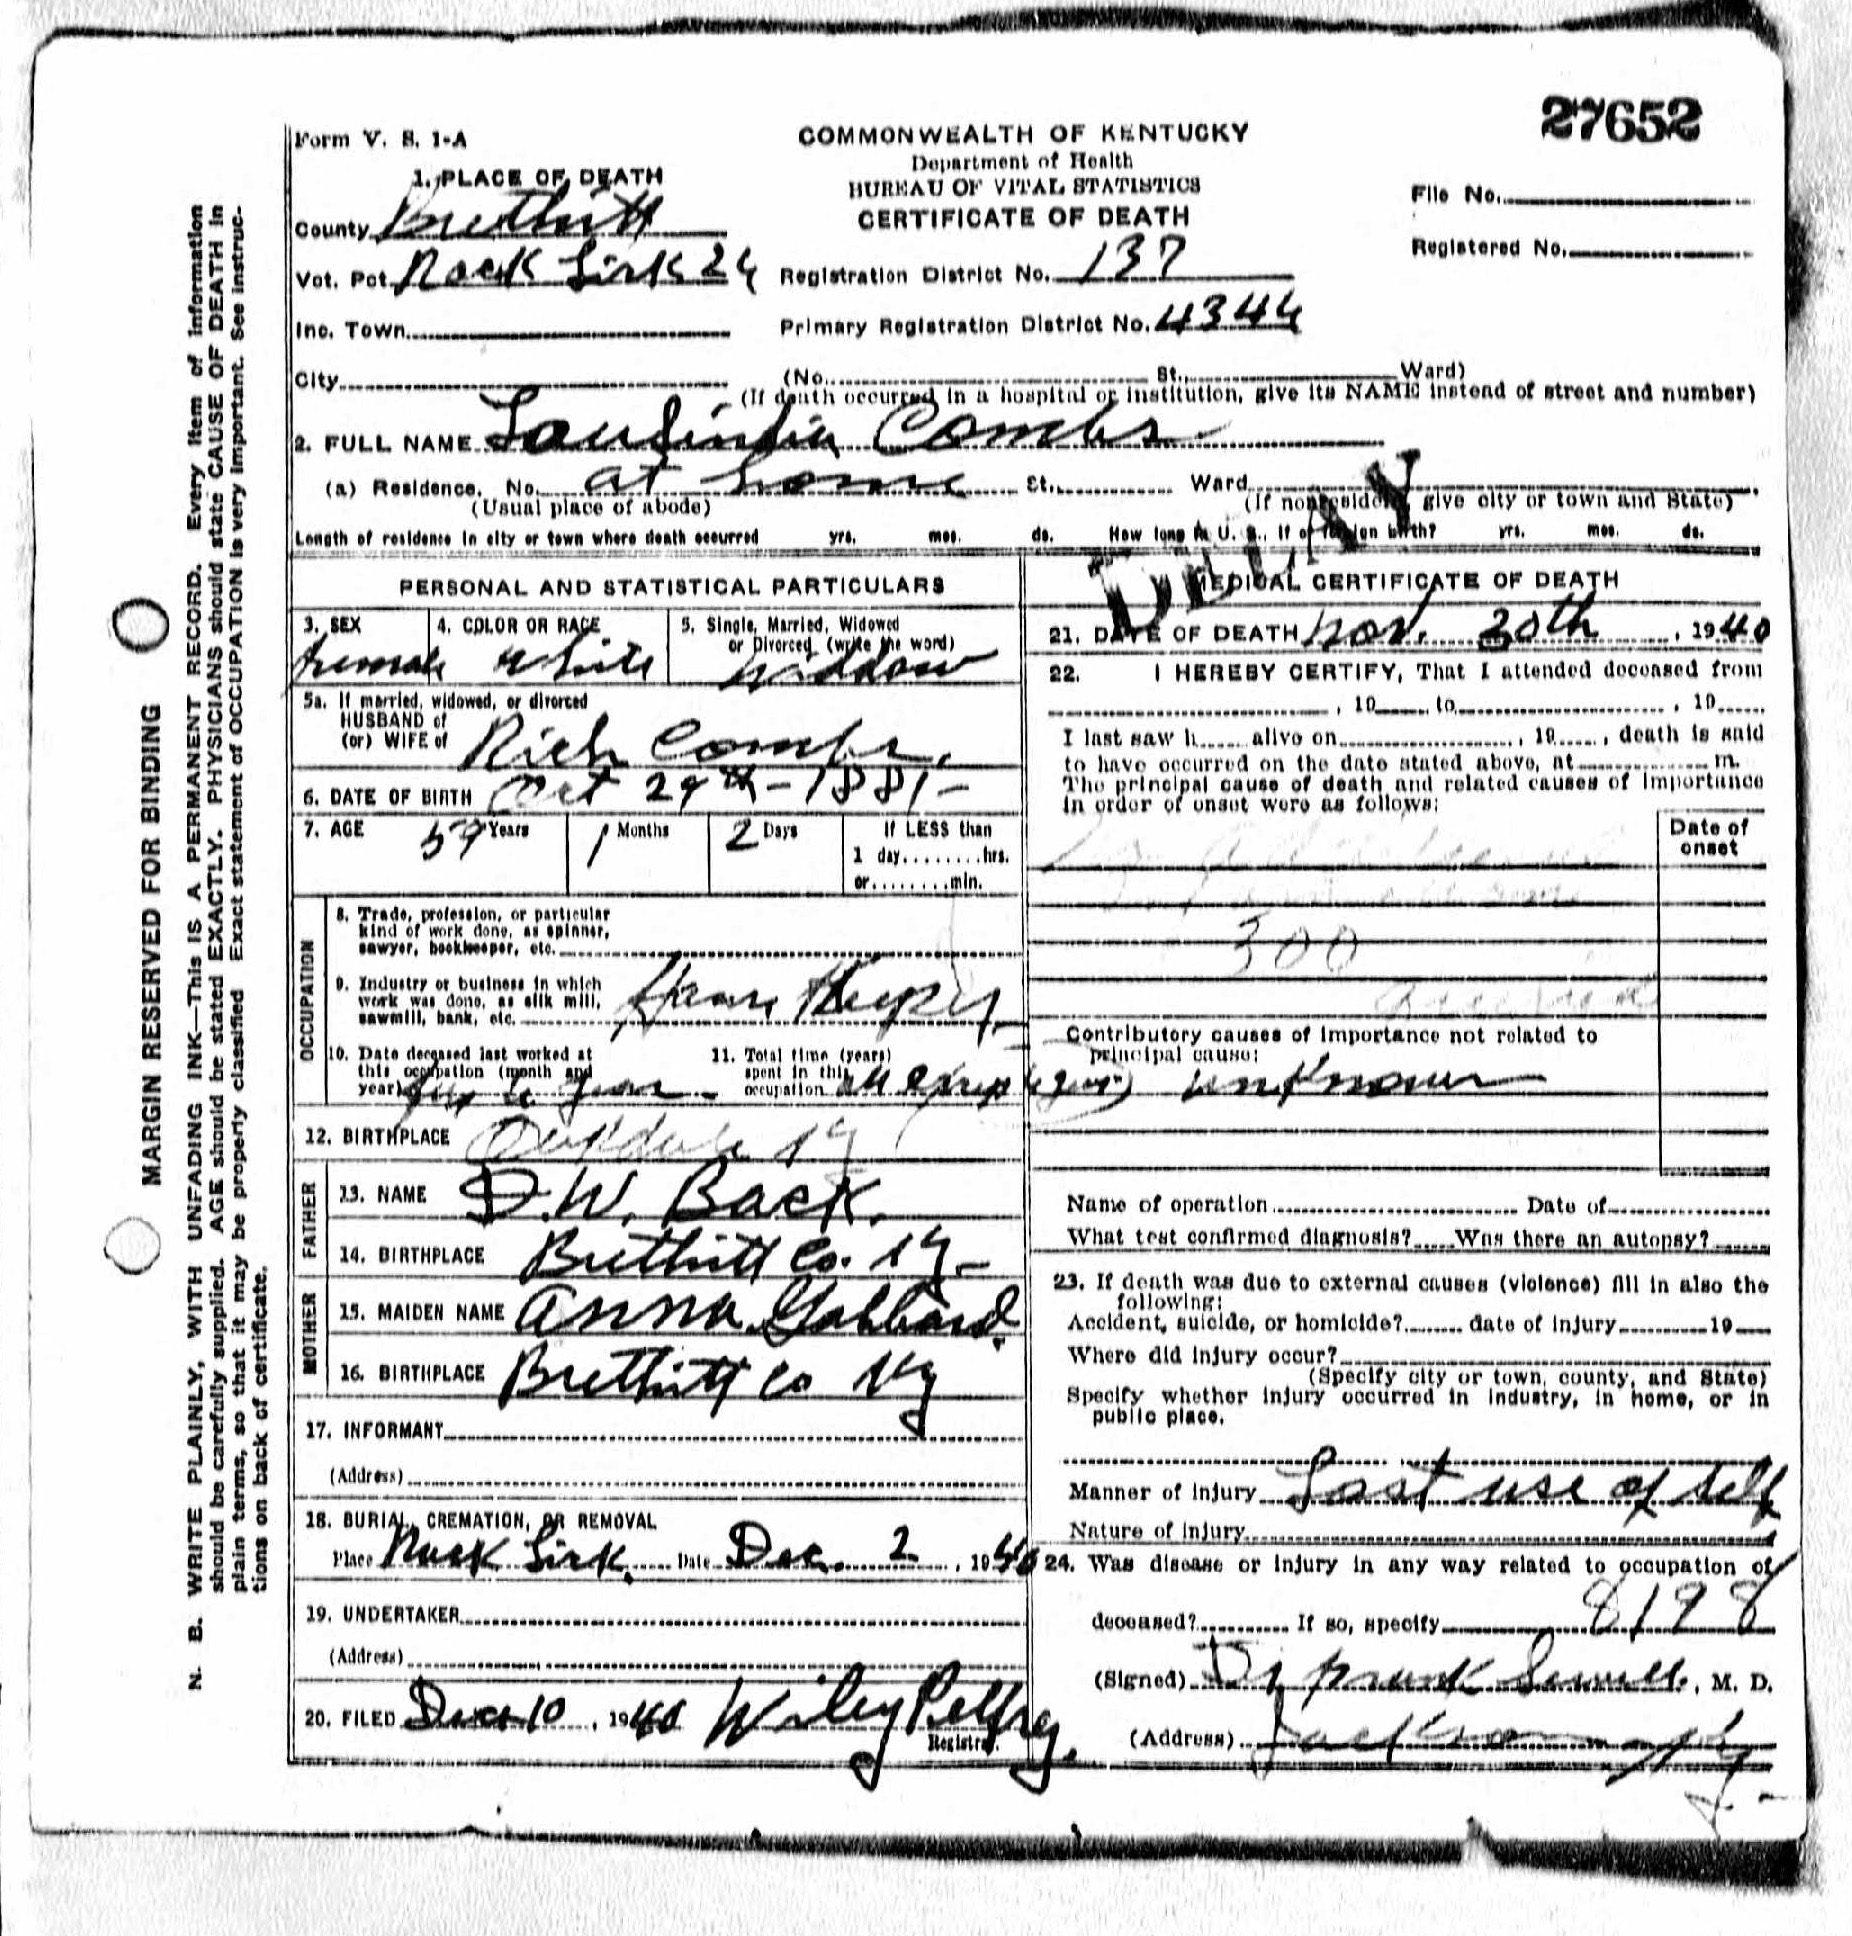 27652
Form V. S. 1-A
COMMONWEALTH OF KENTUCKY
Department of Health
BUREAU OF VITAL STATISTICS
CERTIFICATE OF DEATH
File No.
Registered No.
1. PLACE OF DEATH
County Breathitt
Vot. Pct. Rock Lick 24
Registration District No. 137
Inc. Town
Primary Registration District No. 4344
City (No. St. Ward)
(If death occurred in a hospital or institution, give its NAME instead of street and number)
2. FULL NAME Combs
(a) Residence. No. at home St. Ward
(Usual place of abode) (If nonresident give city or town and State)
Length of residence in city or town where death occurred yrs. mos. ds. How long in U. S., if of foreign birth? yrs. mos. ds.
DELAY
PERSONAL AND STATISTICAL PARTICULARS
3. SEX 4. COLOR OR RACE 5. Single, Married, Widowed
or Divorced (write the word)
Female White Widdow
5a. If married, widowed, or divorced
HUSBAND of
(or) WIFE of Rich Combs.
6. DATE OF BIRTH Oct 29th - 1881 -
7. AGE 59 Years 1 Months 2 Days If LESS than
1 day........hrs.
or........min.
OCCUPATION
8. Trade, profession, or particular
kind of work done, as spinner,
sawyer, bookkeeper, etc.
9. Industry or business in which
work was done, as silk mill,
sawmill, bank, etc.
10. Date deceased last worked at
this occupation (month and
year)
11. Total time (years)
spent in this
occupation all
12. BIRTHPLACE Oakdale Ky
FATHER
13. NAME D. W. Back.
14. BIRTHPLACE Breathitt Co. Ky -
MOTHER
15. MAIDEN NAME Anna Gabbard.
16. BIRTHPLACE Breathitt Co Ky
17. INFORMANT
(Address)
18. BURIAL, CREMATION, OR REMOVAL
Place Rock Lick. Date Dec. 2, 1940
19. UNDERTAKER
(Address)
20. FILED Dec 10, 1940 Wiley Pelfrey.
Registrar.
MEDICAL CERTIFICATE OF DEATH
21. DATE OF DEATH Nov. 30th, 1940
22. I HEREBY CERTIFY, That I attended deceased from
, 19 to , 19
I last saw h alive on , 19 , death is said
to have occurred on the date stated above, at m.
The principal cause of death and related causes of importance
in order of onset were as follows:
Date of
onset
300
Contributory causes of importance not related to
principal cause:
unknown
Name of operation Date of
What test confirmed diagnosis? Was there an autopsy?
23. If death was due to external causes (violence) fill in also the
following:
Accident, suicide, or homicide? date of injury 19
Where did injury occur?
(Specify city or town, county, and State)
Specify whether injury occurred in industry, in home, or in
public place.
Manner of injury Lost use of self
Nature of injury
24. Was disease or injury in any way related to occupation of
deceased? If so, specify 8198
(Signed) Dr Frank Sewell, M. D.
(Address) Jackson Ky
MARGIN RESERVED FOR BINDING
N. B. WRITE PLAINLY, WITH UNFADING INK—This IS A PERMANENT RECORD. Every item of information
should be carefully supplied. AGE should be stated EXACTLY. PHYSICIANS should state CAUSE OF DEATH in
plain terms, so that it may be properly classified Exact statement of OCCUPATION is very important. See instruc-
tions on back of certificate.